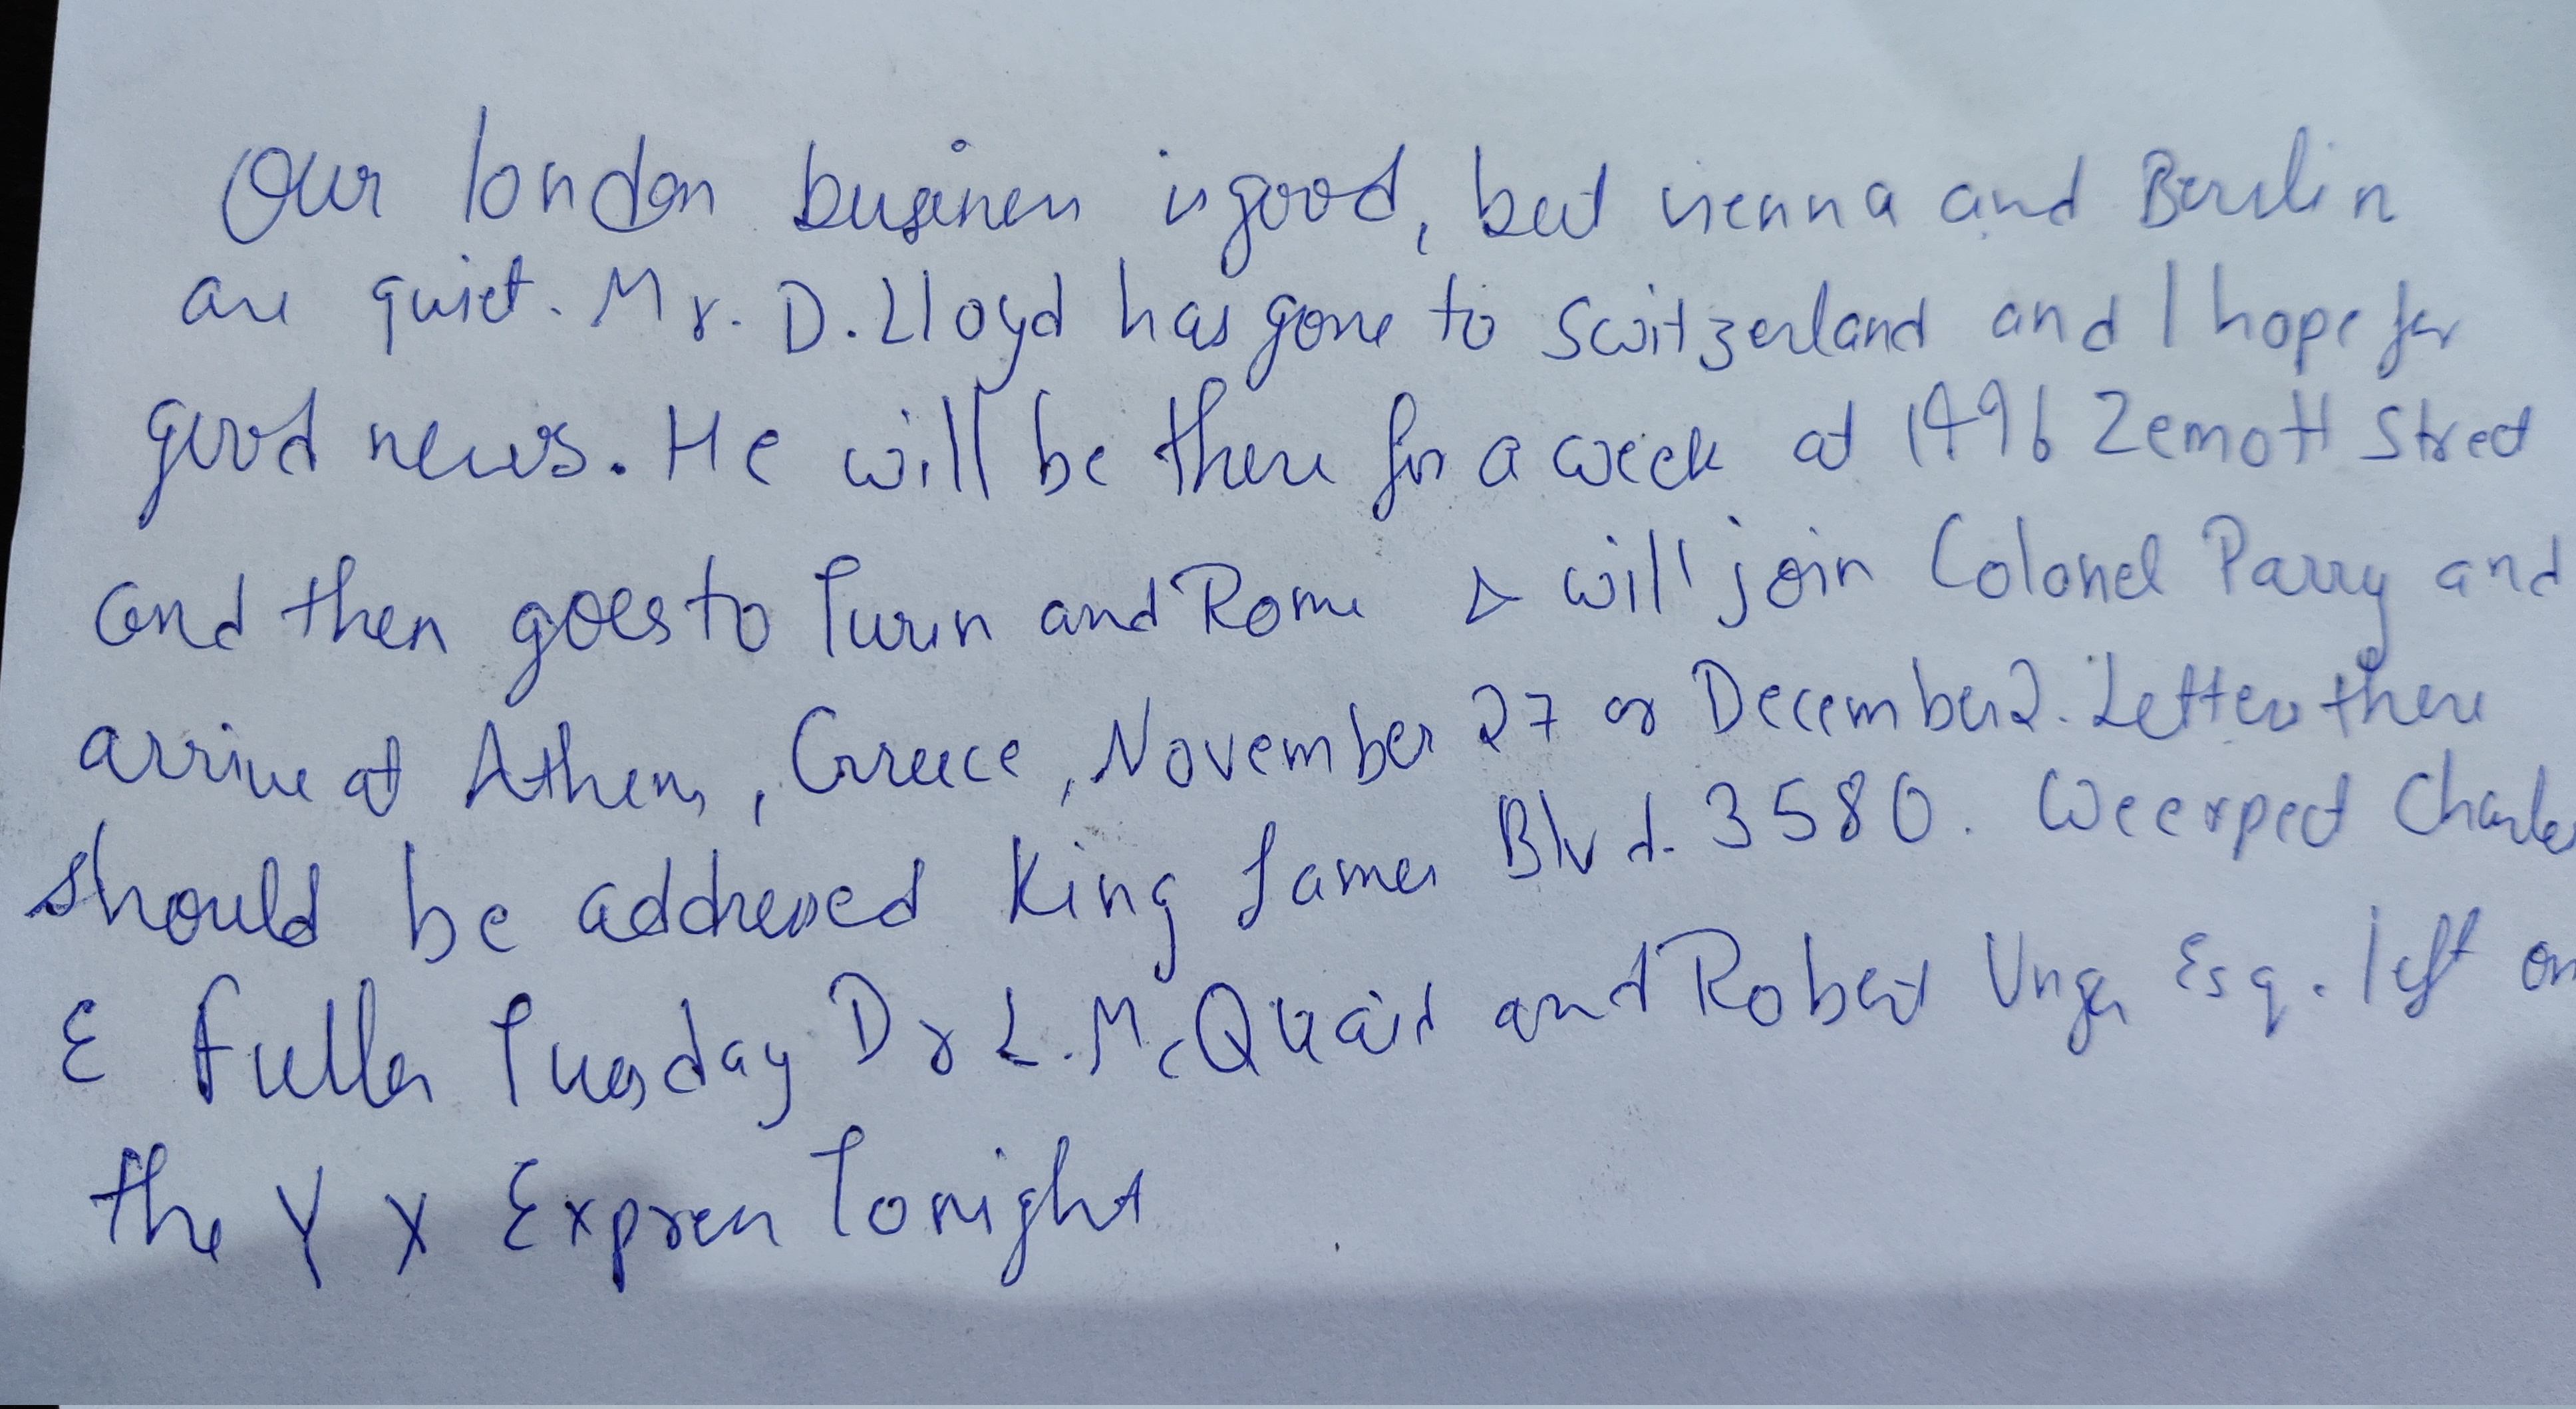 Our london business is good, but vienna and Berlin
are quiet. Mr. D. Lloyd has gone to Switzerland and I hope for
good news. He will be there for a week at 1496 Zemott Street
and then goes to Turin and Rome & will join Colonel Parry and
arrive at Athens, Greece, November 27 or December 2. Letters there
should be addressed King James Blvd. 3580. We expect Charles
E Fuller Tuesday Dr L. McQuaid and Robert Unger Esq. left on
the Y X Express Tonight